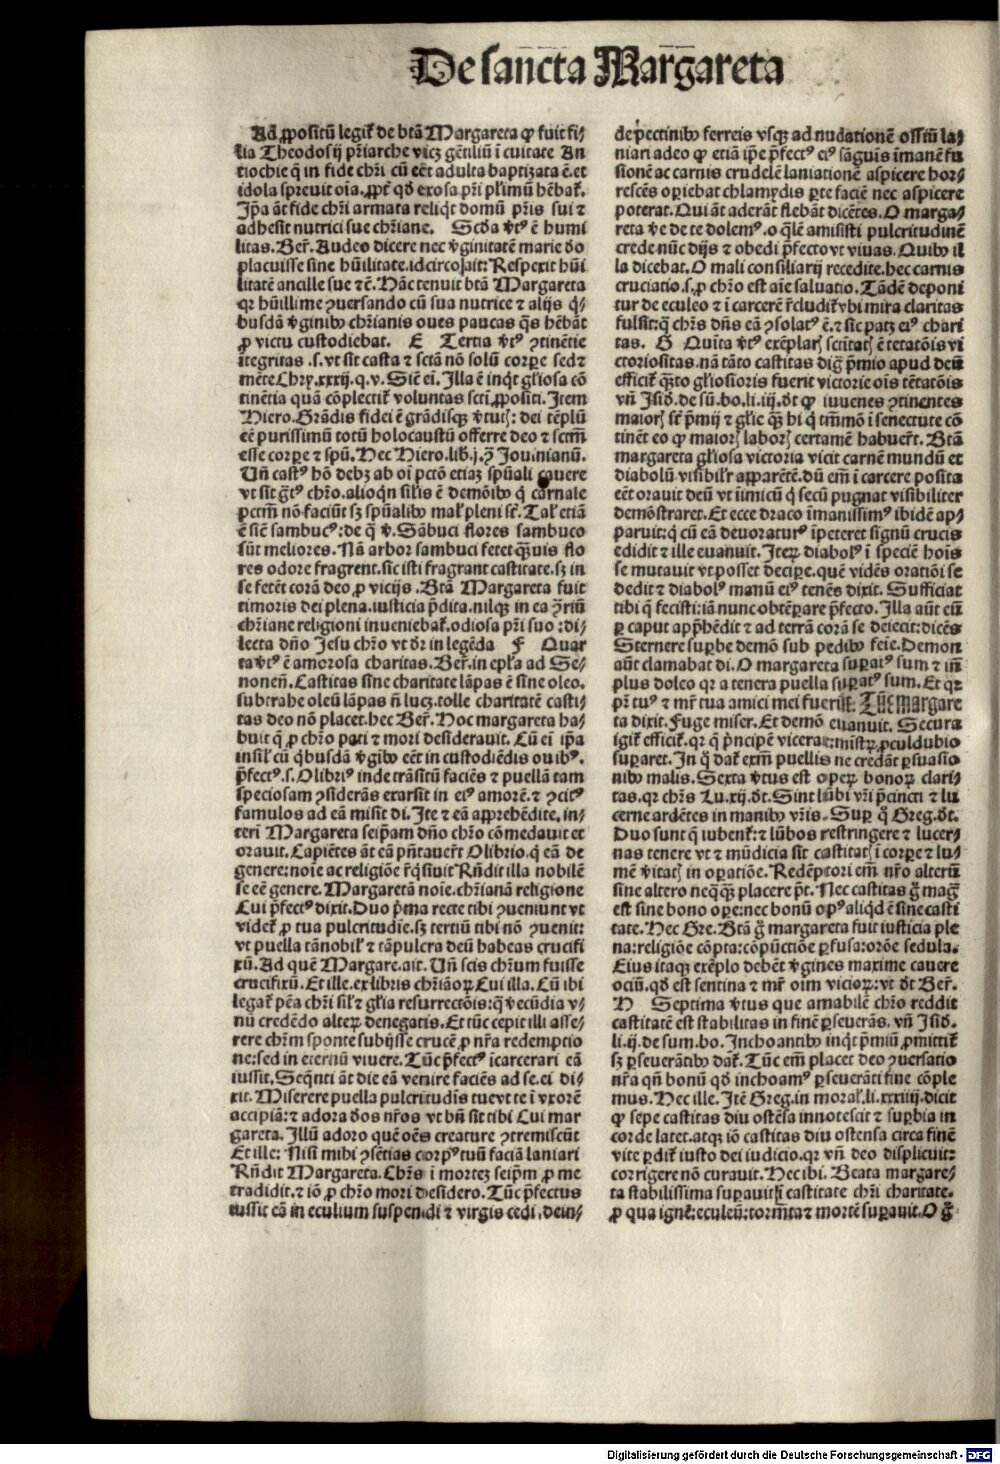 De sancta Margareta
Ad ꝓpositū legit̄ de btā Margareta ꝙ fuit fi⸗
lia Theodosij pr̄iarche vicꝫ gētiliū ī cuitate An
tiochie q̄ in fide chr̄i cū eēt adulta baptizata ē. et
idola spreuit oīa. ꝓpt̄ qd̄ exosa pr̄i pl̓imū hēbat̄.
Ip̄a āt fide chr̄i armata reliq̇t domū pr̄is sui ⁊
adhesit nutrici sue chr̄iane. Scd̓a v̓tꝰ ē humi
litas. Ber̄. Audeo dicere nec v̓ginitatē marie do
placuisse sine hūilitate. idcirco ait: Respexit hūi
litatē ancille sue ⁊c̄. Hāc tenuit btā Margareta
qꝛ hūillime ꝯuersando cū sua nutrice ⁊ alijs q̇⸗
busdā v̓ginibꝰ chr̄ianis oues paucas q̄s hēbāt
ꝓ victu custodiebat. E Tertia v̓tꝰ ꝯtinētie
ītegritas .s. vt sit casta ⁊ sctā nō solū corꝑe sed ⁊
mēte Chry. xxxij. q. v. Sic̄ ei. Illa ē inq̇t gl̓iosa cō
tinētia quā cōplectit̄ voluntas scti ꝓpositi. Item
Hiero. Grādis fidei ē grādisqꝫ v̓tut̓: dei tēplū
eē purissimū totū holocaustū offerre deo ⁊ sctm̄
esse corꝑe ⁊ spū. Hec Hiero. lib. j. ꝯ̄ Jouinianū.
Vn̄ castꝰ hō debꝫ ab oī pctō etiaꝫ spūali cauere
vt sit g̓tꝰ chr̄o. alioqn̄ sil̓is ē demōibꝰ q̇ carnale
pctm̄ nō faciūt sꝫ spūalibꝰ mal̓ pleni st̄. Tal̓ etiā
ē sic̄ sambucꝰ: de q̄ v̓. Sābuci flores sambuco
sūt meliores. Nā arbor sambuci fetet q̄ꝫuis flo
res odore fragrent. sic̄ isti fragrant castitate. sꝫ in
se fetēt corā deo ꝓ vicijs. Btā Margareta fuit
timoris dei plena. iusticia p̄dita. nilqꝫ in ea ꝯ̄riū
chr̄iane religioni inueniebat̄. odiosa pr̄i suo: di⸗
lecta dn̄o Jesu chr̄o vt dr̄ in legēda F Quar
ta v̓tꝰ ē amorosa charitas. Ber̄. in epl̓a ad Se⸗
nonen̄. Castitas sine charitate lāpas ē sine oleo.
subtrahe oleū lāpas n̄ lucꝫ. tolle charitatē casti⸗
tas deo nō placet. hec Ber̄. Hoc margareta ha⸗
buit q̄ ꝓ chr̄o pati ⁊ mori desiderauit. Cū ei ip̄a
in sil̓ cū q̇busdā v̓gībꝰ eēt in custodiēdis ouibꝰ.
p̄fectꝰ. s. Olibriꝰ inde trāsitū faciēs ⁊ puellā tam
speciosam ꝯsiderās exarsit in eiꝰ amorē. ⁊ ꝯcitꝰ
famulos ad eā misit di. Ite ⁊ eā app̄rehēdite. in⸗
terī Margareta seip̄am dn̄o chr̄o cōmēdauit et
orauit. Capiētes āt eā pn̄tauer̄t Olibrio. q̇ eā de
genere: noīe ac religiōe r̄q̇siuit Rn̄dit illa nobilē
se eē genere. Margaretā noīe. chr̄ianā religione
Cui p̄fectꝰ dixit. Duo p̄ma recte tibi ꝯueniunt vt
videt̄ ꝓ tua pulcritudīe. sꝫ tertiū tibi nō ꝯuenit:
vt puella tā nobil̓ ⁊ tā pulcra deū habeas crucifi
xū. Ad quē Margare. ait. Vn̄ scis chr̄um fuisse
crucifixū. Et ille. ex libris chr̄iāoꝝ Cui illa. Cū ibi
legat̄ pēa chr̄i sil̓ ⁊ gl̓ia resurrectōis: q̄ v̓ecūdia v⸗
nū credēdo alteꝝ denegatis. Et tūc cepit illi asse⸗
rere chr̄m sponte subijsse crucē ꝓ nr̄a redemptio
ne: sed in eternū viuere. Tūc p̄fectꝰ īcarcerari eā
iussit. Seq̄nti āt die eā venire faciēs ad se. ei di⸗
xit. Miserere puella pulcritudis tue vt te ī vxorē
accipiā: ⁊ adora dos nr̄os vt bn̄ sit tibi Cui mar
gareta. Illū adoro quē oēs creature ꝯtremiscūt
Et ille: Nisi mihi ꝯsētias corpꝰ tuū faciā laniari
Rn̄dit Margareta. Chr̄s ī mortez seip̄m ꝓ me
tradidit. ⁊ iō ꝓ chr̄o mori desidero. Tūc p̄fectus
iussit eā in eculium suspendi ⁊ virgis cedi. dein⸗
de pectinibꝰ ferreis vsqꝫ ad nudationē ossiū la⸗
niari adeo ꝙ etiā ip̄e p̄fectꝰ eiꝰ sāguīs īmanē fu
sionē ac carnis crudelē laniationē aspicere hor⸗
rescēs opiebat chlamydis ꝑte faciē nec aspicere
poterat. Qui āt aderāt flebāt dicētes. O marga⸗
reta ve̓ de te dolemꝰ. o q̄lē amisisti pulcritudinē
crede nūc dijs ⁊ obedi p̄fecto vt viuas. Quibꝰ il
la dicebat. O mali consiliarij recedite. hec carnis
cruciatio .s. ꝓ chr̄o est aīe saluatio. Tādē deponi
tur de eculeo ⁊ ī carcerē r̄cludit̄ vbi mira claritas
fulsit: q̄ chr̄s dn̄s eā ꝯsolatꝰ ē. ⁊ sic patꝫ eiꝰ chari
tas. G Quīta v̓tꝰ exēplar̓ sctitat̓ ē tētatōis vi
ctoriositas. nā tāto castitas dig̓ p̄mio apud deū
efficit̄ q̄sto gl̓iosioris fuerit victorie oīs tētatōis
vn̄ Jsid̓. de sū. bo. li. iij. dt̄ ꝙ iuuenes ꝯtinentes
maior̓ st̄ p̄mij ⁊ gl̓ie q̄ꝫ hi q̇ tm̄mō ī senectute cō
tinēt eo ꝙ maior̓ labor̓ certamē habuer̄t. Btā
margareta gl̓iosa victoria vicit carnē mundū et
diabolū visibil̓r apparētē. dū em̄ ī carcere posita
eēt orauit deū vt īimicū q̇ secū pugnat visibiliter
demōstraret. Et ecce draco īmanissimꝰ ibidē ap⸗
paruit: q̇ cū eā deuoraturꝰ īpeteret signū crucis
edidit ⁊ ille euanuit. Iteꝝ diabolꝰ ī speciē hoīs
se mutauit vt posset decipe. quē vidēs oratiōi se
dedit ⁊ diabolꝰ manū eiꝰ tenēs dixit. Sufficiat
tibi q̄ fecisti: iā nunc obtēpare p̄fecto. Illa aūt eū
ꝑ caput app̄hēdit ⁊ ad terrā corā se deiecit: dicēs
Sternere suꝑbe demō sub pedibꝰ feīe. Demon
aūt clamabat di. O margareta suꝑatꝰ sum ⁊ in̄
plus doleo qꝛ a tenera puella suꝑatꝰ sum. Et qꝛ
pr̄ tuꝰ ⁊ mr̄ tua amici mei fuerūt. Tūc Margare
ta dixit. Fuge miser. Et demō euanuit. Secura
igit̄ efficit̄. qꝛ q̄ p̄ncipē vicerat: mīstꝝ ꝓculdubio
suꝑaret. In q̄ dat̄ exm̄ puellis ne credāt ꝑsuasio
nibꝰ malis. Sexta v̓tus est opeꝝ bonoꝝ clari⸗
tas. qꝛ chr̄s Lu. xij. dt̄. Sint lūbi vr̄i p̄cincti ⁊ lu
cerne ardētes in manibꝰ vr̄is. Suꝑ q̄ Greg. dt̄.
Duo sunt q̄ iubent̄: ⁊ lūbos restringere ⁊ lucer⸗
nas tenere vt ⁊ mūdicia sit castitat̓ ī corꝑe ⁊ lu⸗
mē v̓itat̓ in oꝑatiōe. Redēptori em̄ nr̄o alterū
sine altero neqq̄ꝫ placere pt̄. Nec castitas g̓ mag̓
est sine bono oꝑe: nec bonū opꝰ aliq̇d ē sine casti
tate. Hec Gre. Btā g̓ margareta fuit iusticia ple
na: religiōe cōpta: cōpūctiōe ꝑfusa: orōe sedula.
Eius itaqꝫ exēplo debēt v̓gines maxime cauere
ociū. qd̓ est sentina ⁊ mr̄ oīm vicioꝝ: vt dt̄ Ber̄.
H Septima v̓tus que amabilē chr̄o reddit
castitatē est stabilitas in finē ꝑseuerās. vn̄ Jsid̓.
li. ij. de sum. bo. Inchoantibꝰ inq̇t p̄miū ꝓmittit̄
sꝫ ꝑseuerātibꝰ dat̄. Tūc em̄ placet deo ꝯuersatio
nr̄a qn̄ bonū qd̓ inchoamꝰ ꝑseuerāti fine cōple
mus. Hec ille. Itē Greg. in moral̓. li. xxxiiij. dicit
ꝙ sepe castitas diu ostēsa innotescit ⁊ suꝑbia in
corde latet. atqꝫ iō castitas diu ostensa circa finē
vite ꝑdit̄ iusto dei iudicio. qꝛ vn̄ deo displicuit:
corrigere nō curauit. Hec ibi. Beata margare⸗
ta stabilissima suꝑauit ī castitate chr̄i charitate.
ꝓ qua ignē: eculeū: torm̄ta ⁊ mortē suꝑauit. O g̓
Digitalisierung gefördert durch die Deutsche Forschungsgemeinschaft - DFG